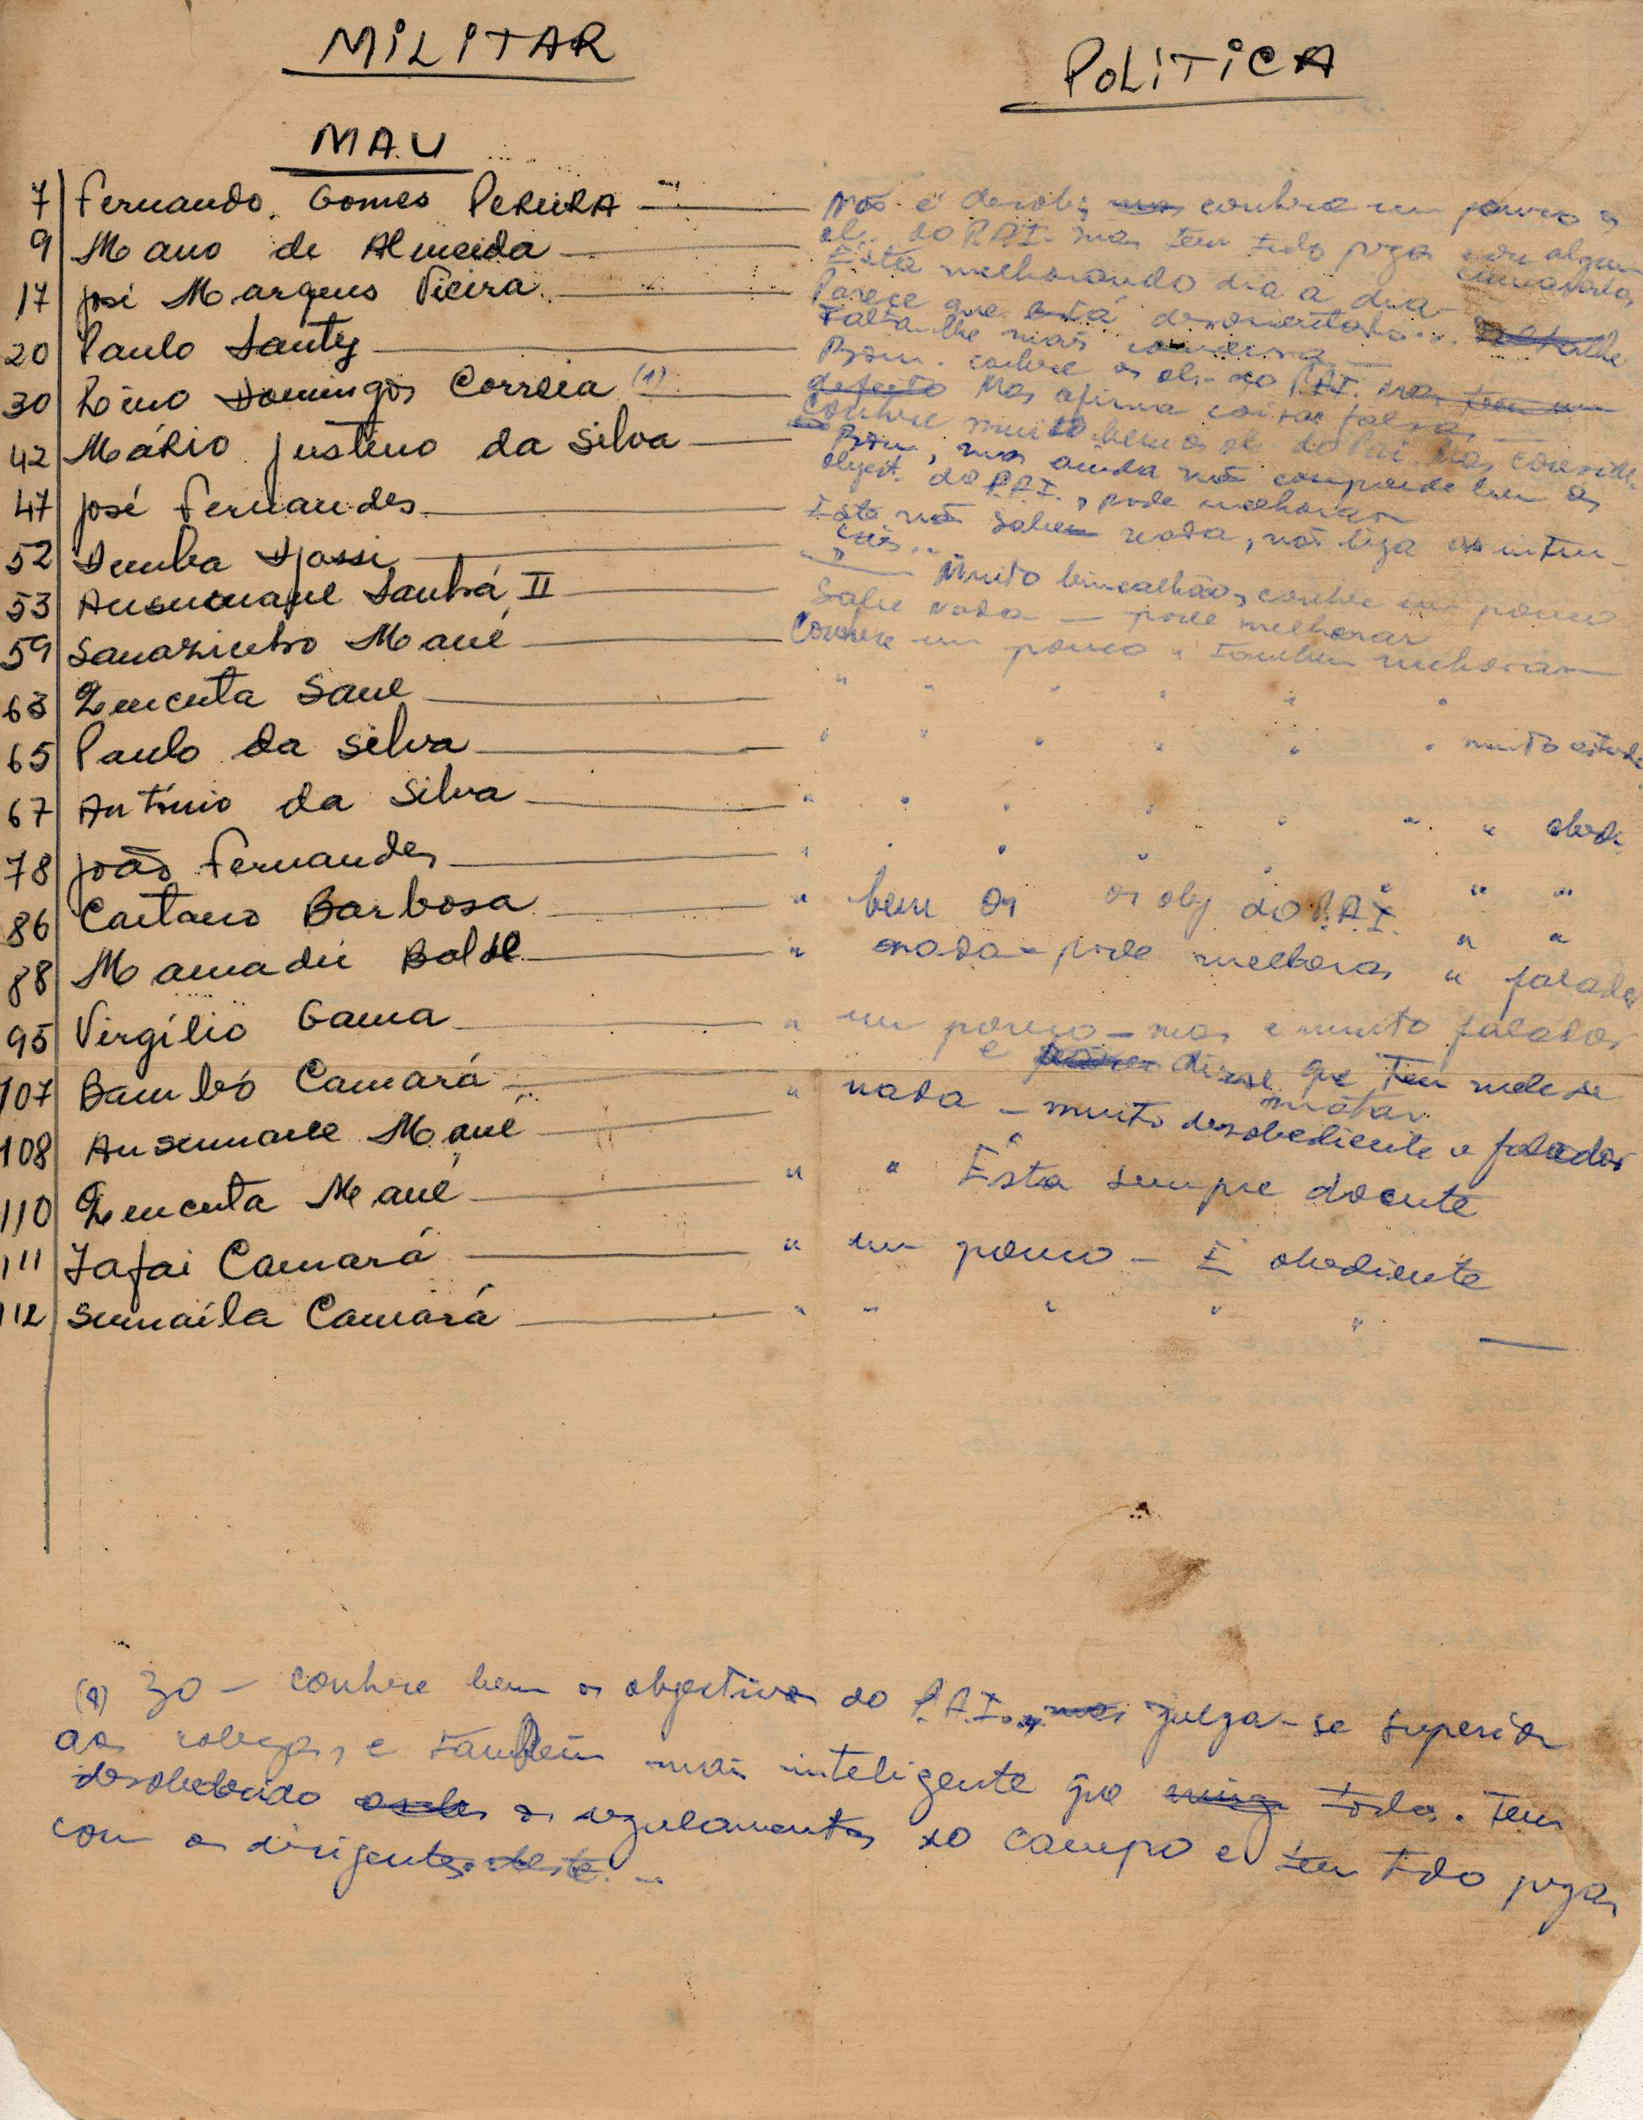 MILITAR
POLITICA
MAU
7 Fernando Gomes PEREIRA — Não é desob; mas conhece um pouco os
ob. do P.A.I. mas tem tido pegas com alguns camaradas
9 Mano de Almeida — Está melhorando dia a dia
17 José Marques Vieira — Parece que está desorientado...
Falta-lhe mais
20 Paulo Santy — Bom. conhece os ob. do P.A.I. mas tem um
defeito Mas afirma coisas falsas
30 Lino Domingos Correia (1) — Conhece muito bem os ob do PAI. Mas
42 Mário Justino da Silva — Bom, mas ainda não compreende bem os
object. do P.A.I., pode melhorar
47 José Fernandes — Este não sabe nada, não liga
52 Demba Djassi — " Muito brincalhão, conhece um pouco
53 Ansumane Sanhá II — Sabe nada — pode melhorar
59 Sanazinho Mané — Conhece um pouco e também melhorar
63 Quencuta Sane — " " " " " "
65 Paulo da Silva — " " " " " " muito
67 António da Silva — " " " " " " " obed.
78 João Fernandes — " " " " " " " "
86 Caetano Barbosa — " bem os os obj do P.A.I. " "
88 Mamadú Baldé — " nada - pode melhorar " falador
95 Virgílio Gama — " um pouco — mas é muito falador
e disse que tem mede se
matar
107 Bambó Camará — " nada — muito desobediente e falador
108 Ansumane Mané — " " "
110 Quencuta Mané — " " Esta sempre doente
111 Fafai Camará — " um pouco — É obediente
112 Sumaíla Camará — " " " " " —
(1) 30 — conhece bem os objectivos do P.A.I., mas julga-se superior
aos colegas, e também mais inteligente que todos. Tem
desobedecido os regulamentos do campo e tem tido pegas
com os dirigentes deste. —